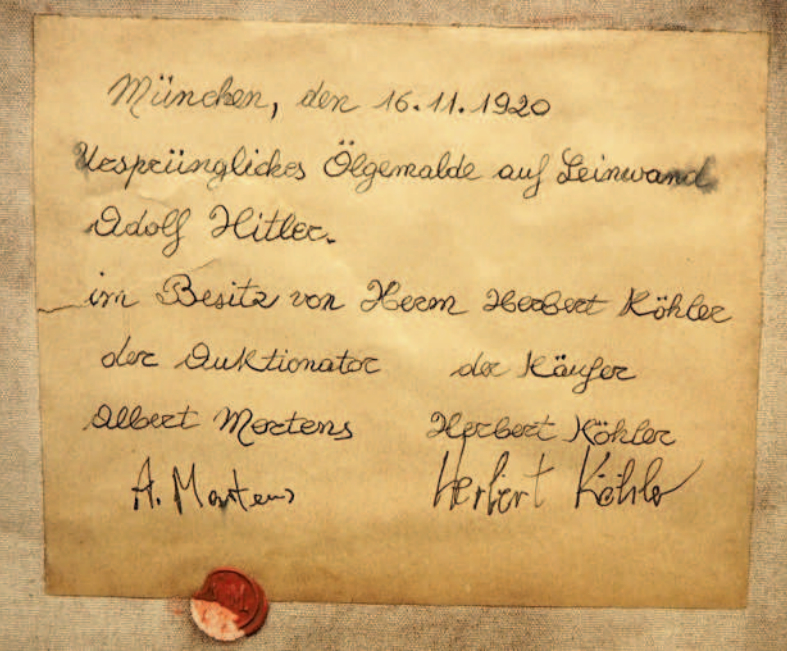 München, den 16.11.1920
Ursprüngliches Ölgemalde auf Leinwand
Adolf Hitler.
im Besitz von Herrn Herbert Köhler
der Auktionator der Käufer
Albert Mertens Herbert Köhler
A. Mertens Herbert Köhler